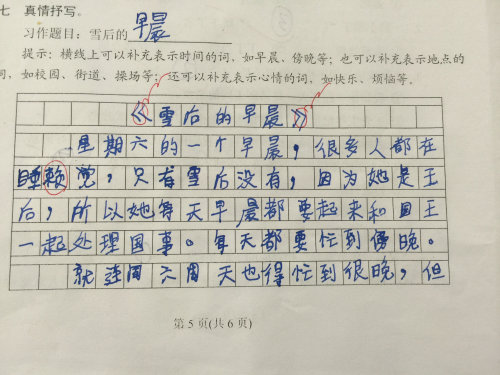 七 真情抒写。
习作题目：雪后的早晨
提示：横线上可以补充表示时间的词，如早晨、傍晚等；也可以补充表示地点的
词，如校园、街道、操场等；还可以补充表示心情的词，如快乐、烦恼等。
《雪后的早晨》
星期六的一个早晨，很多人都在
睡赖觉，只有雪后没有，因为她是王
后，所以她每天早晨都要起来和国王
一起处理国事。每天都要忙到傍晚。
就连周六周天也得忙到很晚，但
第5页(共6页)